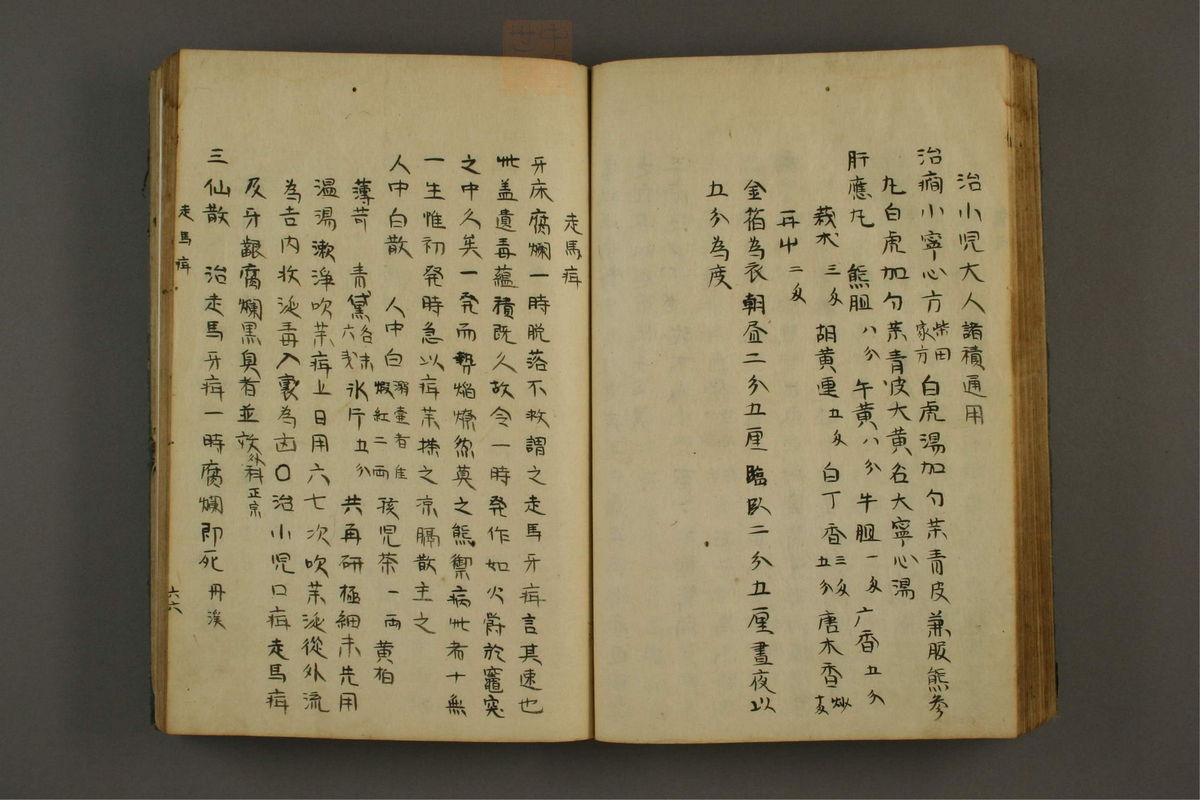 治小児大人諸積通用
治癇小寧心方柴田家方白虎湯加勺茉青皮兼服熊參
丸白虎加勺茉青皮大黄名大寧心湯
肝應丸 熊胆八分 午黄八分 牛胆一匁 广香五分
莪朮三匁 胡黄連五匁 白丁香三匁五分 唐木香炒
二匁
金箔為衣朝昼二分五厘臨臥二分五厘晝夜以
五分為度
走馬疳
牙床腐爛一時脱落不救謂之走馬牙疳言其速也
此盖遺毒蘊積既久故令一時発作如火爵於竈突
之中久矣一発而勢焔燎莫之熊禦病此者十無
一生惟初発時急以疳茉搽之凉膈散主之
人中白散 人中白溺壷者佳煆紅二両 孩児茶一両 黄柏
薄苛 青黛各末六戔 氷片五分 共再研極細末先用
温湯漱淨吹茉疳上日用六七次吹茉涎從外流
為吉内收涎毒入裏為凶○治小児口疳走馬疳
及牙齦腐爛黒臭者並效外科正宗
三仙散 治走馬牙疳一時腐爛即死丹溪
走馬疳
六六